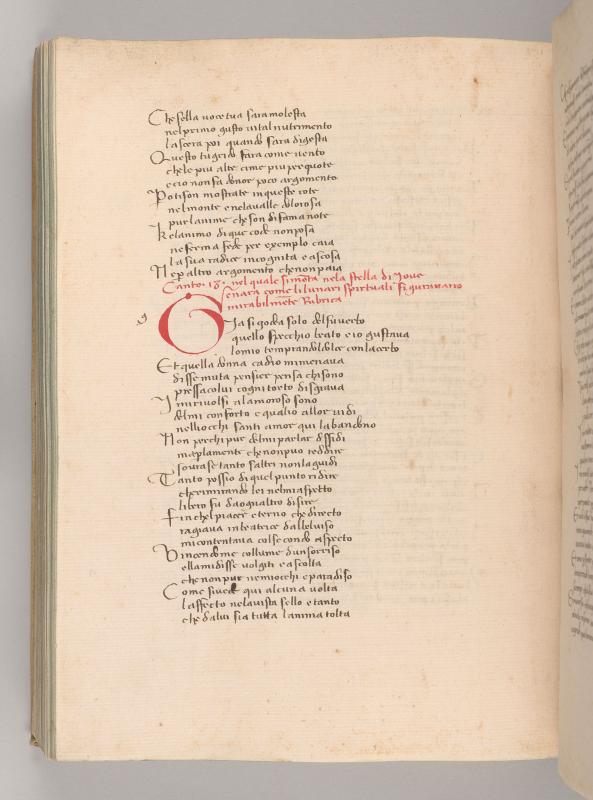 Che sella voce tua sara molesta
nel primo gusto vital nutrimento
lascera poi quando sara digesta
Questo tu grido fara come vento
che le piu alte cime piu perquote
e cio non fa donor poco argomento
Po ti son mostrate in queste rote
nel monte e nela valle dolorosa
pur lanime che son di fama note
Kelanimo di que code non posa
ne ferma fede per exemplo caia
la sua radice incognita e ascosa
Ne per altro argomento che non paia
Canto. 18. nel quale si mōta nela stella di Jove
e narra come li lunari spirituali figuravano
mirabilmēte Rubrica
g
Gia si godea solo del suverto
quello specchio beato e io gustava
lo mio temprando il dolce con lacerto
Et quella donna cadio mi menava
disse muta pensier pensa chi sono
presso a colui cogni torto disgrava
I mi rivolsi alamoroso sono
del mi conforto e qual io allor vidi
nelli occhi santi amor qui labandono
Non perchi pur del mi parlar diffidi
ma plamente che non puo reddire
sovra se tanto saltri non la guidi
Tanto possio di quel punto ridire
che rimirando lei nel mi aspetto
libero fu da ogni altro disire
Fin chel piacer eterno che directo
ragiava in beatrice dal bel viso
mi contentava col secondo aspecto
Vincendo me col lume dun sorriso
ella mi disse volgiti e ascolta
che non pur ne miocchi e paradiso
Come si vede qui alcuna volta
laffecto nela vista sello e tanto
che da lui sia tutta lanima tolta